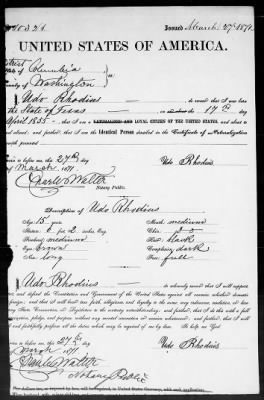 Issued March 27th 1871
UNITED STATES OF AMERICA.
District of Columbia
County of Washington
I, Udo Rhodius do swear that I was born
the State of Texas on or about the 17th day
April 1855 — that I am a NATURALIZED AND LOYAL CITIZEN OF THE UNITED STATES, and about
to travel abroad; and further, that I am the Identical Person described in the Certificate of Naturalization
before me this 27th day
Udo Rhodius
of March, 1871
Charles Walter
Notary Public.
Description of Udo Rhodius
Age: 15 years
Mouth: medium
Stature: 5 feet 2 inches, Eng.
Chin:
Forehead: medium
Hair: black
Eyes: brown
Complexion: dark
Nose: long
Face: full
I, Udo Rhodius do solemnly swear that I will support
and defend the Constitution and Government of the United States against all enemies, whether domestic
or foreign, and that I will bear true faith, allegiance, and loyalty to the same, any ordinance, resolution or law of
any State, Convention, or Legislature to the contrary notwithstanding; and further, that I do this
with a full determination, pledge, and purpose, without any mental reservation or evasion whatsoever; and, further, that I will
and faithfully perform all the duties which may be required of me by law: So help me God.
before me this 27th day
Udo Rhodius
of March, 1871
Charles Walter
Notary Public